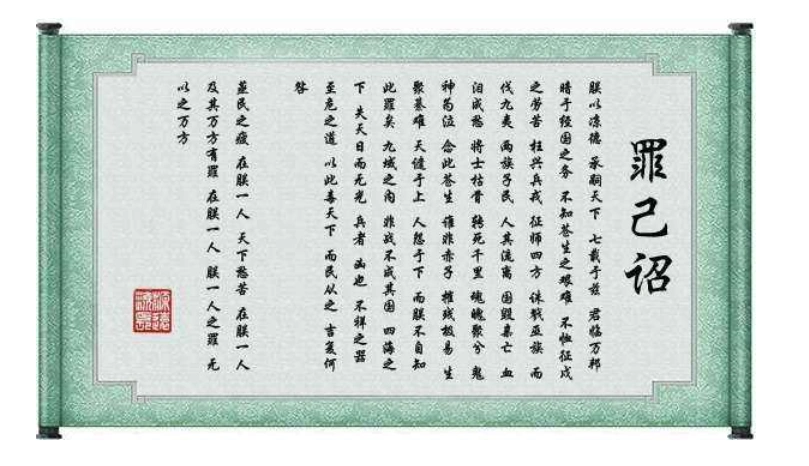 罪己诏
朕以凉德 承嗣天下 七载于兹 君临万邦
暗于经国之务 不知苍生之艰难 不恤征戍
之劳苦 枉兴兵戎 征师四方 诛戮亚族 而
伐九夷 两族子民 人其流离 国毁巢亡 血
泪成愁 将士枯骨 转死千里 魂魄聚兮 鬼
神芶泣 念此苍生 谁非赤子 摧残极易 生
聚綦难 天谴于上 人怨于下 而朕不自知
此罪矣 九域之内 非战不成其国 四海之
下 失天日而无光 兵者 凶也 不祥之器
至危之道 以此毒天下 而民从之 吉复何
咎
蒸民之疲 在朕一人 天下愁苦 在朕一人
及其万方有罪 在朕一人 朕一人之罪 无
以之万方